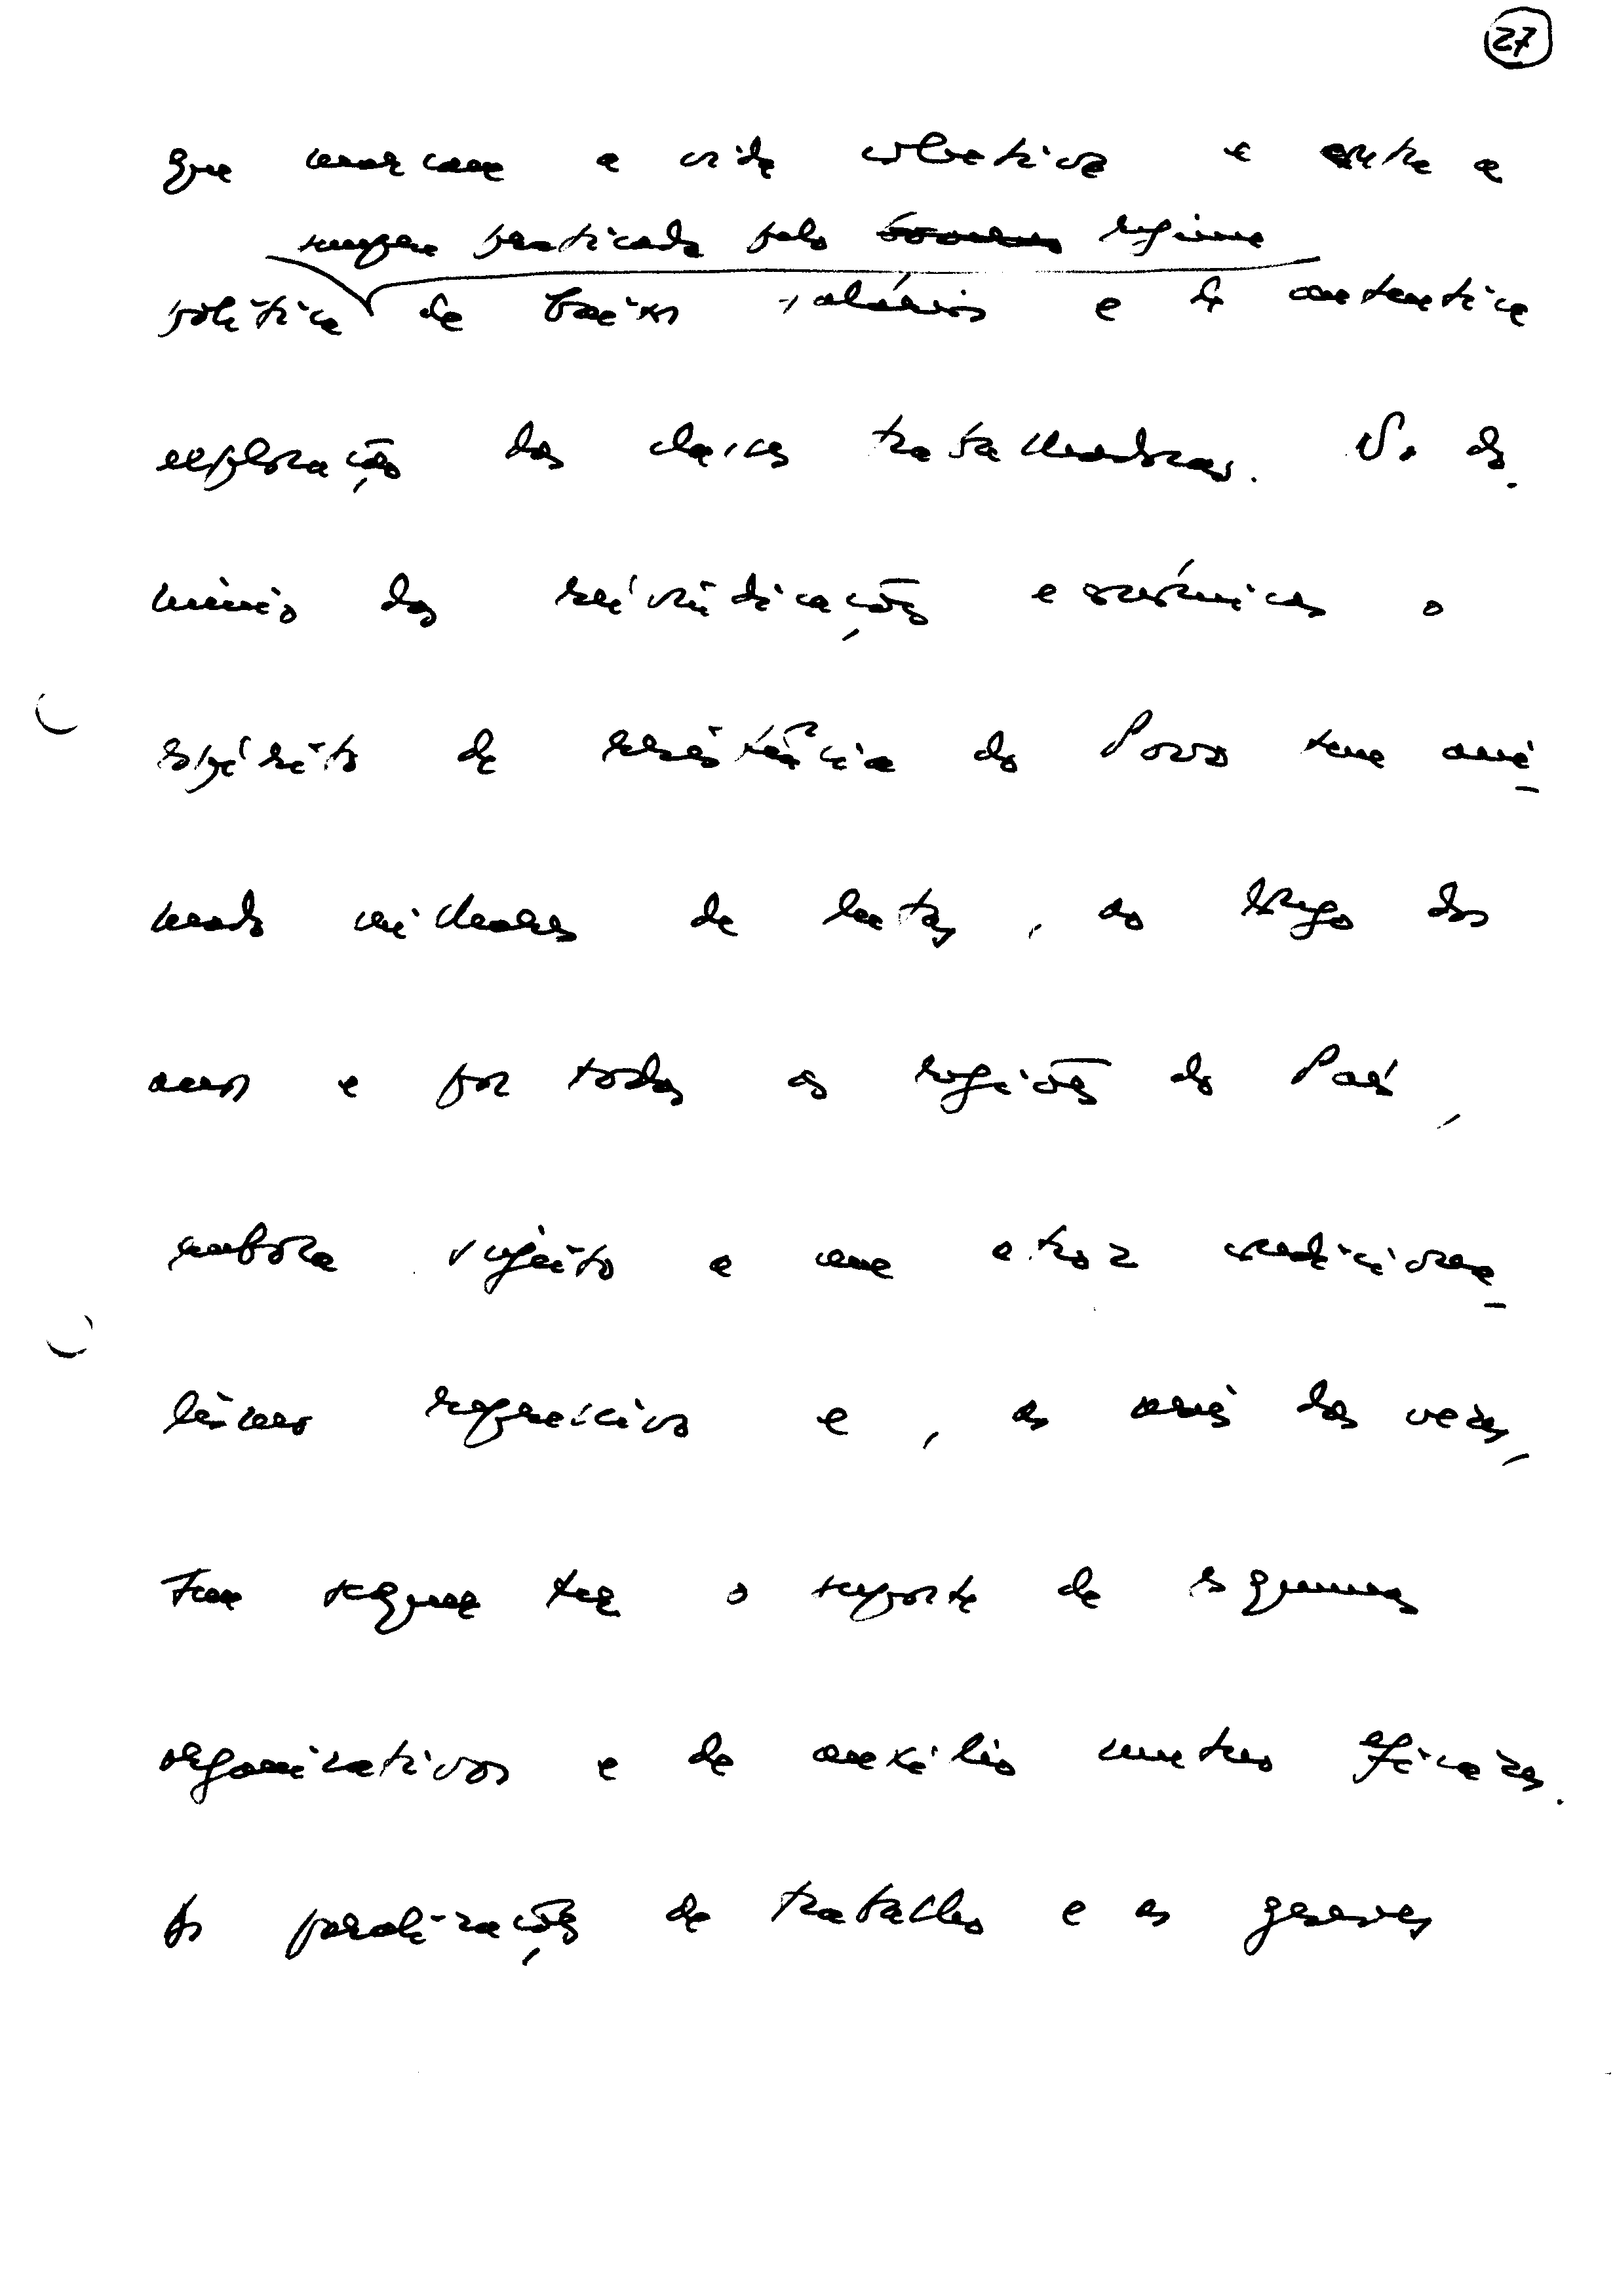 27
que marcam a vida colectiva e entre a
sempre praticada pelo regime
política de baixos salários e de autêntica
exploração das classes trabalhadoras. No do-
mínio das reivindicações económicas o
espírito de resistência do Povo tem ani-
mado milhares de lutas, ao longo dos
anos e por todas as regiões do País,
embora sujeito a um atroz condiciona-
lismo repressivo e, as mais das vezes,
sem sequer ter o suporte de esquemas
organizativos e de auxílio mútuo eficazes.
As paralizações de trabalho e as greves